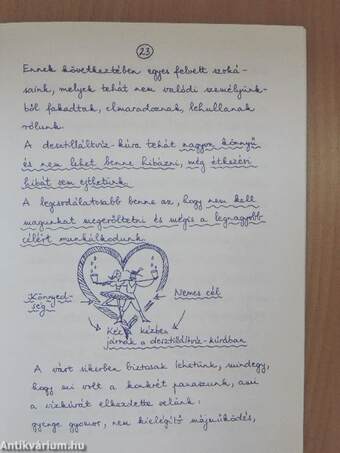 23
Ennek következtében egyes felvett szoká-
saink, melyek tehát nem valódi személyünk-
ből fakadtak, elmaradoznak, lehullanak
rólunk.
A desztilláltvíz-kúra tehát nagyon könnyű
és nem lehet benne hibázni, még étkezési
hibát sem ejthetünk.
A legcsodálatosabb benne az, hogy nem kell
magunkat megerőltetni és mégis a legnagyobb
célért munkálkodunk.
Könnyed-
ség
Nemes cél
Kéz a kézben
járnak a desztilláltvíz-kúrában
A várt sikerben biztosak lehetünk, mindegy,
hogy mi volt a konkrét panaszunk, ami
a vízkúrát elkezdette velünk:
gyenge gyomor, nem kielégítő májműködés,
Antikvárium.hu